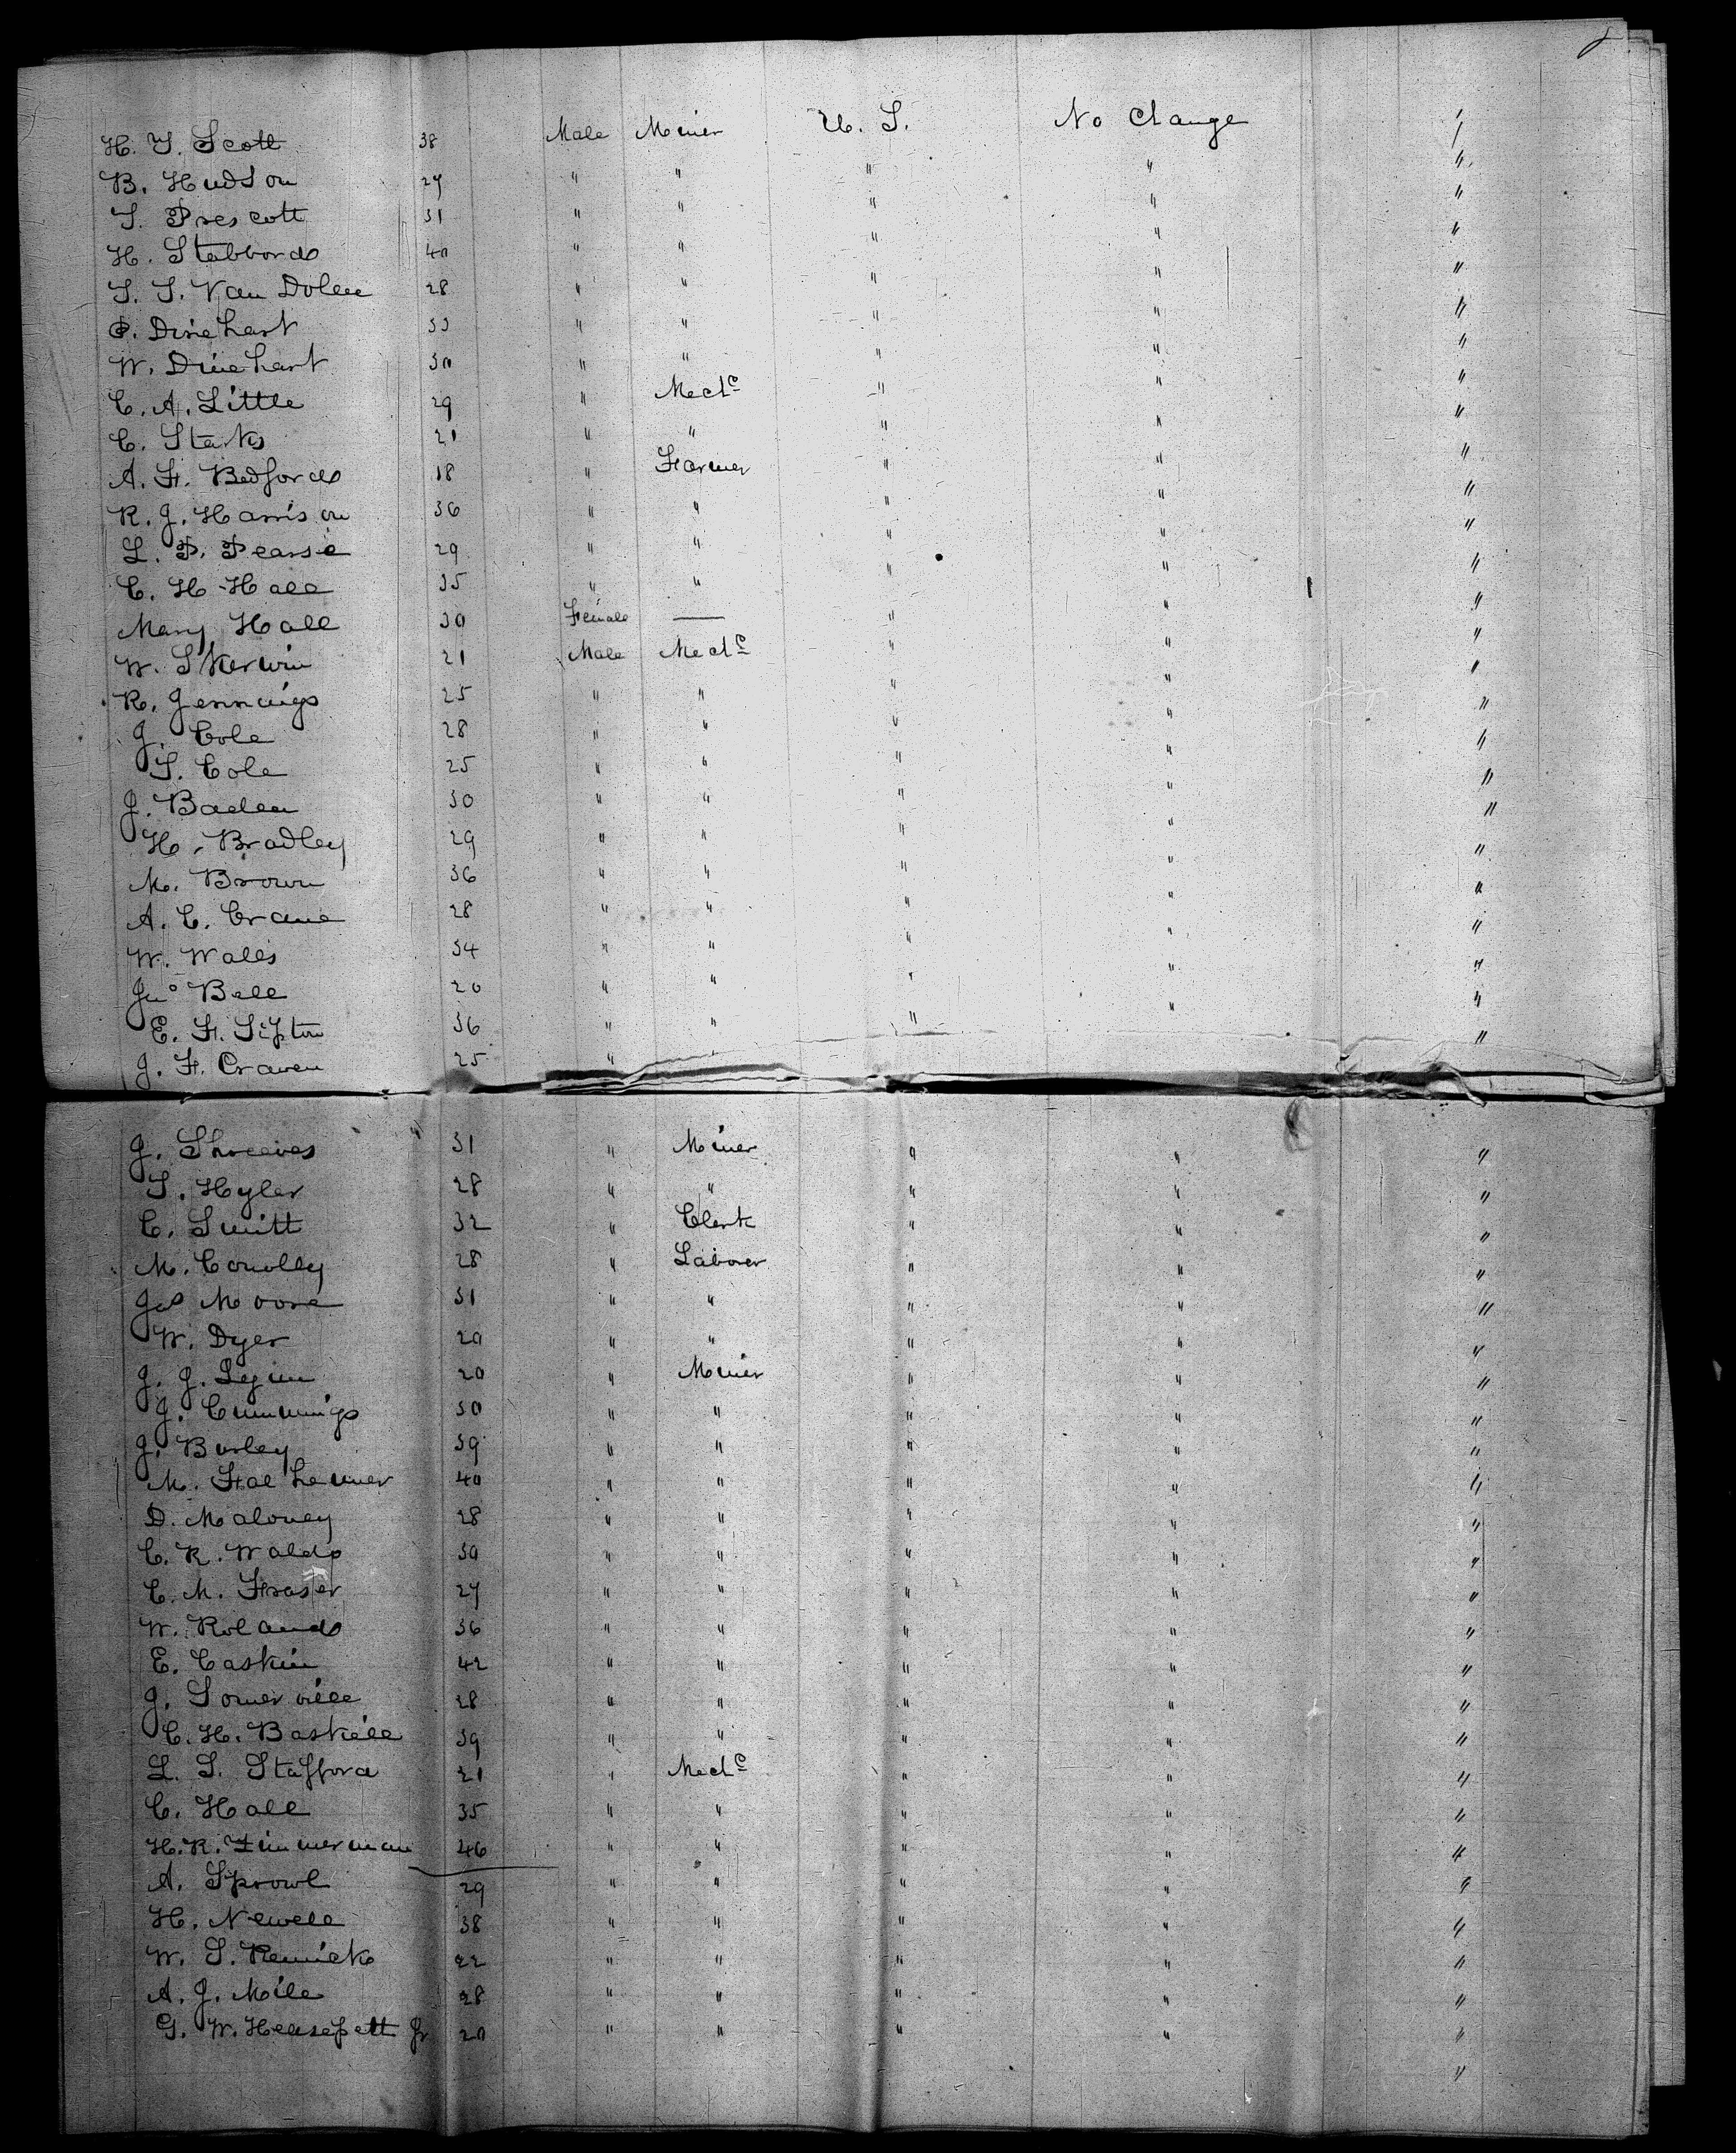 H. T. Scott 38 Male Miner U. S. No Change "
B. Hudson 27 " " " " "
T. Prescott 31 " " " " "
H. Stabbord 40 " " " " "
S. S. Van Dolen 28 " " " " "
P. Dinehart 33 " " " " "
W. Dinehart 30 " " " " "
C. A. Little 29 " Mechc " " "
C. Starks 21 " " " " "
A. F. Bedford 18 " Farmer " " "
R. J. Harrison 36 " " " " "
L. P. Pearse 29 " " " " "
C. H. Hall 35 " " " " "
Mary Hall 30 Female — " " "
W. Skerwin 21 Male Mechc " " "
R. Jennings 25 " " " " "
J. Cole 28 " " " " "
S. Cole 25 " " " " "
J. Baden 30 " " " " "
H. Bradley 29 " " " " "
M. Brown 36 " " " " "
A. C. Crane 28 " " " " "
W. Walls 34 " " " " "
Jno Bell 20 " " " " "
E. F. Sipton 36 " " " " "
J. F. Craven 25 "
J. Shreeves 31 " Miner " " "
S. Hyler 28 " " " " "
C. Smitt 32 " Clerk " " "
M. Conolly 28 " Laborer " " "
Jas Moore 31 " " " " "
W. Dyer 20 " " " " "
J. J. 20 " Miner " " "
J. Cummings 30 " " " " "
J. Burley 39 " " " " "
M. 40 " " " " "
D. Maloney 28 " " " " "
C. R. Waldo 30 " " " " "
C. M. Fraser 27 " " " " "
W. Roland 36 " " " " "
E. Caskin 42 " " " " "
J. Somerville 28 " " " " "
C. H. Baskill 39 " " " " "
L. S. Stafford 21 " Mechc " " "
C. Hall 35 " " " " "
H. R. Zimmerman 46 " " " " "
A. Sprowl 29 " " " " "
H. Newell 38 " " " " "
W. S. Remick 22 " " " " "
A. J. Mile 28 " " " " "
G. W. Jr 20 " " " " "
"